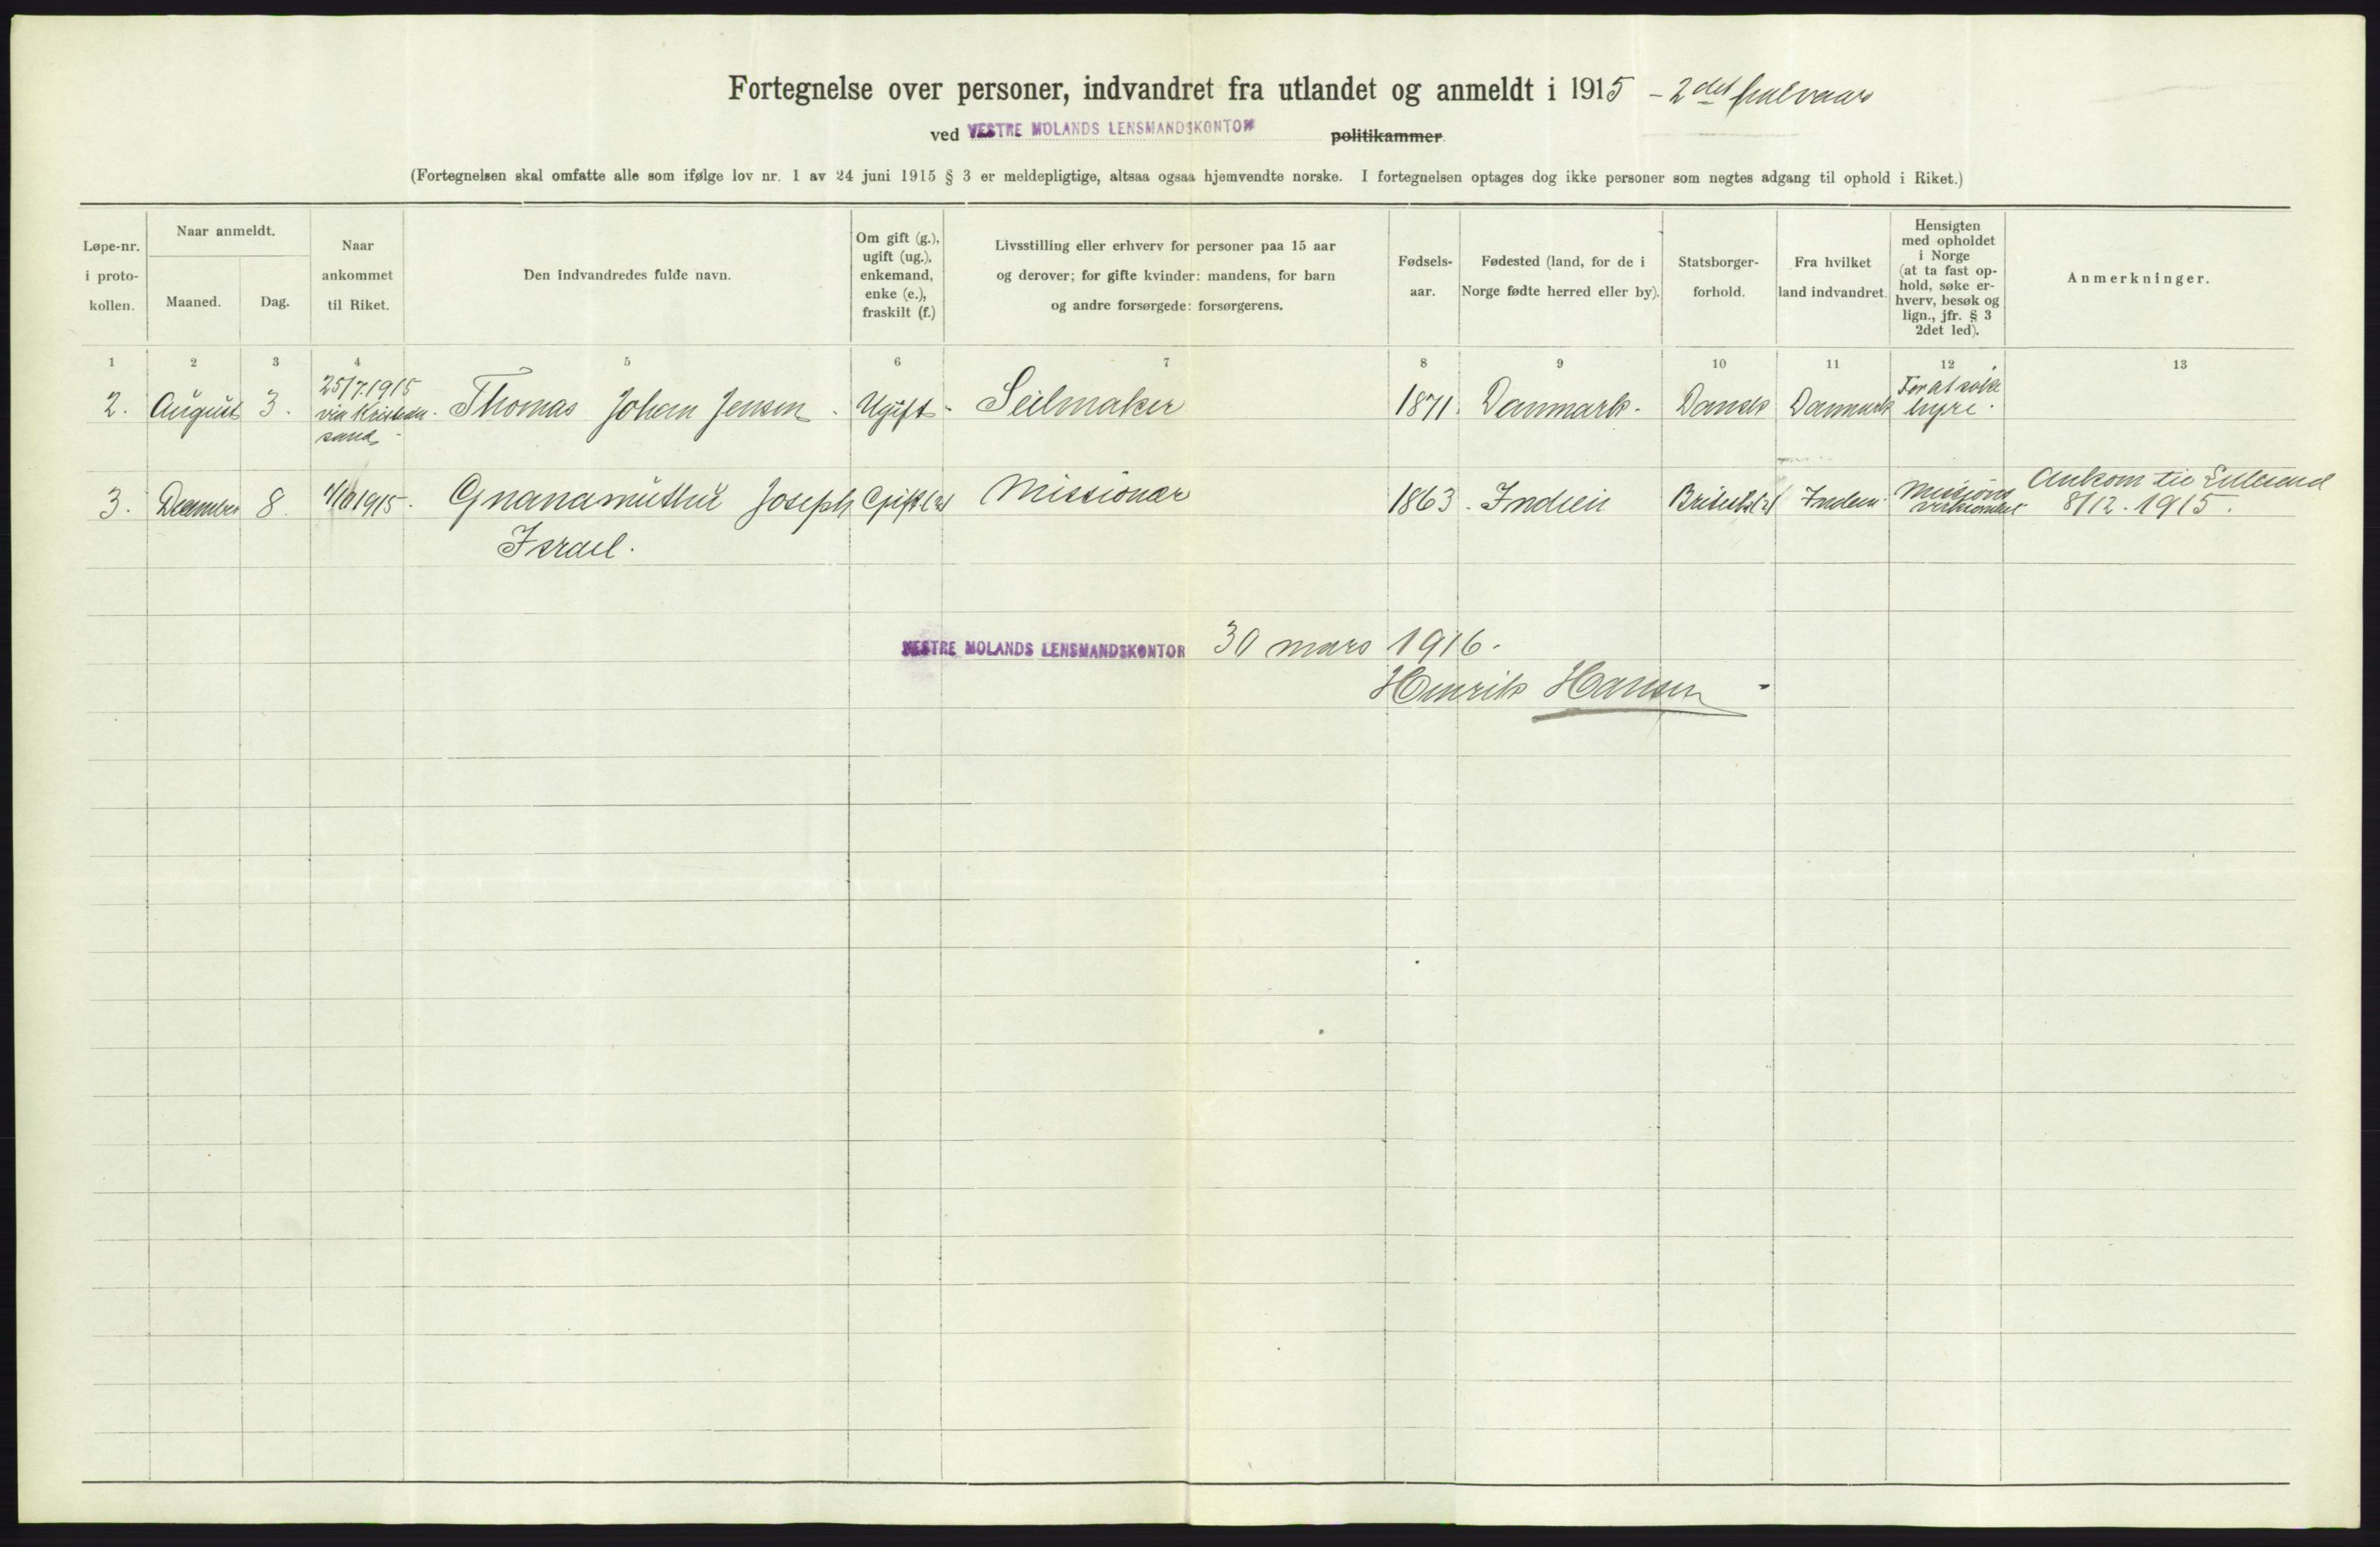 Fortegnelse over personer, indvandret fra utlandet og anmeldt i 1915 - 2det halvaar
ved VESTRE MOLANDS LENSMANDSKONTOR politikammer.
(Fortegnelsen skal omfatte alle som ifølge lov nr. 1 av 24 juni 1915 § 3 er meldepligtige, altsaa ogsaa hjemvendte norske. I fortegnelsen optages dog ikke personer som negtes adgang til ophold i Riket.)
Løpe-nr.
i proto-
kollen.
Naar anmeldt.
Maaned.
Dag.
Naar
ankommet
til Riket.
Den indvandredes fulde navn.
Om gift (g.),
ugift (ug.),
enkemand,
enke (e.),
fraskilt (f.)
Livsstilling eller erhverv for personer paa 15 aar
og derover; for gifte kvinder: mandens, for barn
og andre forsørgede: forsørgerens.
Fødsels-
aar.
Fødested (land, for de i
Norge fødte herred eller by).
Statsborger-
forhold.
Fra hvilket
land indvandret.
Hensigten
med opholdet
i Norge
(at ta fast op-
hold, søke er-
hverv, besøk og
lign., jfr. § 3
2det led).
Anmerkninger.
1 2 3 4 5 6 7 8 9 10 11 12 13
2. August 3.
25/7.1915
via Kristian-
sand.
Thomas Johan Jensen. Ugift. Seilmaker 1871. Danmark. Dansk Danmark
For at søke
hyre.
3. December 8. 1915. Gnanamuthu Joseph
Israel.
Gift Missionær 1863. Indien Britisk Indien.
Missions
virksomhet
Ankom til Lillesand
8/12. 1915.
VESTRE MOLANDS LENSMANDSKONTOR 30 mars 1916.
Henrik Hansen